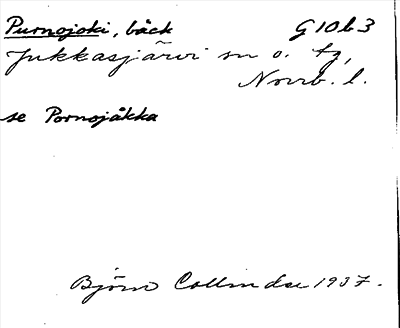 Purnojoki, bäck G10b3
Jukkasjärvi sn o. tg,
Norrb. l.
se Pornojåkka
Björn Collinder 1937.